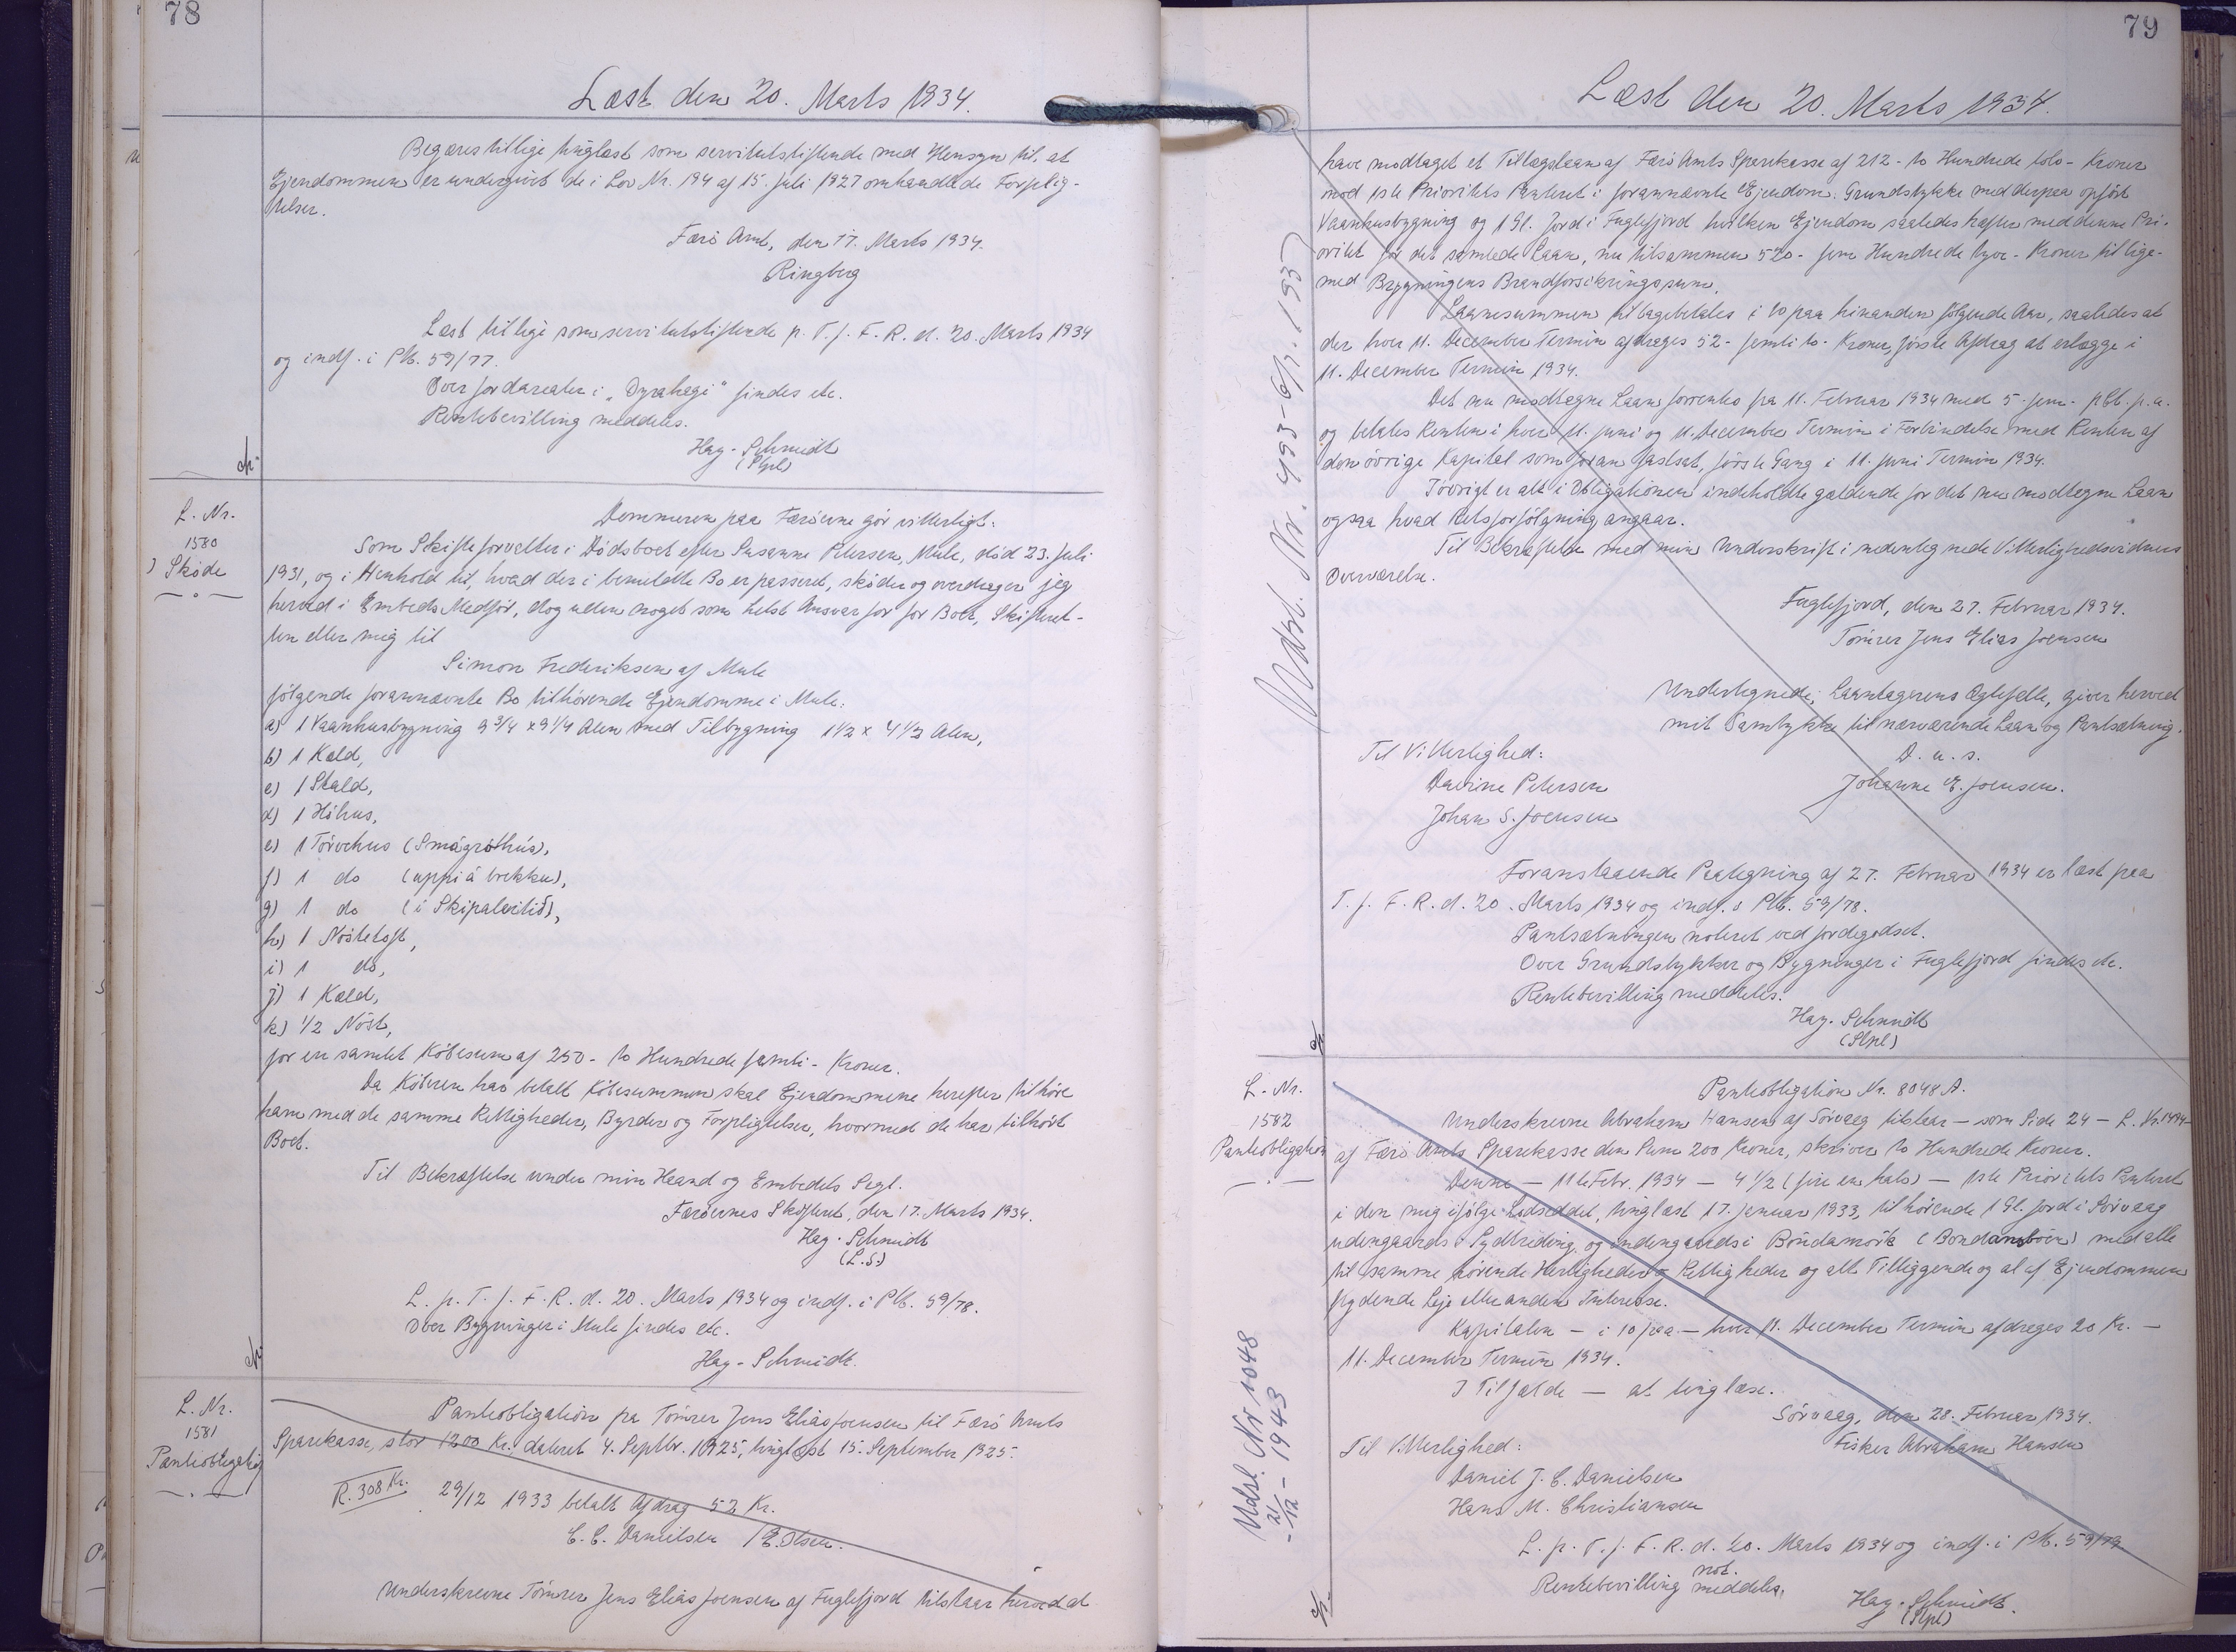 78
Læst den 20. Marts 1934.
Begæres tillige tinglæst som servitutstiftende med Hensyn til, at
Ejendommen er undergivet de i Lov Nr. 194 af 15. Juli 1927 omhandlede Forplig-
telser.
Færö Amt, den 17. Marts 1934.
Ringberg
Læst tillige som servitutstiftende p. T. f. F. R. d. 20. Marts 1934
og indf. i Ptb. 59/77.
Over Jordarealer i "Dyrahagi" findes etc.
Rentebevilling meddeles.
Hag. Schmidt
L. Nr.
1580
Skøde
Dommeren paa Færöerne gör vitterligt:
Som Skifteforvalter i Dödsboet efter Susanne Petersen, Mule, död 23. Juli
1931, og i Henhold til, hvad der i bemeldte Bo er passeret, sköder og overdrager jeg
herved i Embeds Medför, dog uden noget som helst Ansvar for for Boet, Skifteret-
ten eller mig til
Simon Frederiksen af Mule
fölgende forannævnte Bo tilhörende Ejendomme i Mule:
a) 1 Vaanhusbygning 9 3/4 x 9 1/4 Alen med Tilbygning 1 1/2 x 4 1/2 Alen,
b) 1 Kald,
c) 1 Stald,
d) 1 Höhus,
e) 1 Törvehus (Smágróthús),
f) 1 do (uppi á brekku),
g) 1 do (i Skipalvitið),
h) 1 Nöstetoft,
i) 1 do,
j) 1 Kald,
k) 1/2 Nöst,
for en samlet Köbesum af 250 - to Hundrede femti - Kroner.
Da Köberen har betalt Köbesummen skal Ejendommene herefter tilhöre
ham med de samme Rettigheder, Byrder og Forpligtelser, hvormed de har tilhört
Boet.
Til Bekræftelse under min Haand og Embedets Segl.
Færöernes Skifteret, den 17. Marts 1934.
Hag. Schmidt
(L.S.)
L. p. T. f. F. R. d. 20. Marts 1934 og indf. i Ptb. 59/78.
Over Bygninger i Mule findes etc.
Hag. Schmidt.
L. Nr.
1581
Panteobligation
Panteobligation fra Tömrer Jens Elias Joensen til Færö Amts
Sparekasse, stor 1200 Kr. dateret 4. Septbr. 1925, tinglæst 15. September 1925.
R. 308 Kr. 29/12 1933 betalt Afdrag 52 Kr.
C. C. Danielsen / E. Olsen.
Underskrevne Tömrer Jens Elias Joensen af Fuglefjord tilstaar herved at
79
Læst den 20. Marts 1934.
have modtaget et Tillægslaan af Færö Amts Sparekasse af 212 - to Hundrede tolv - Kroner
mod 1ste Prioritets Panteret i forannævnte Ejendom: Grundstykke med derpaa opfört
Vaanhusbygning og 1 Gl. Jord i Fuglefjord hvilken Ejendom saaledes hæfter med denne Pri-
oritet for det samlede Laan, nu tilsammen 520 - fem Hundrede tyve - Kroner tillige-
med Bygningens Brandforsikringssum.
Laanesummen tilbagebetales i 10 paa hinanden fölgende Aar, saaledes at
der hver 11. December Termin afdrages 52 - femti to - Kroner, förste Afdrag at erlægge i
11. December Termin 1934.
Det nu modtagne Laan forrentes fra 11. Februar 1934 med 5 - fem - pCt. p. a.
og betales Renten i hver 11. Juni og 11. December Termin i Forbindelse med Renten af
den övrige Kapital som foran fastsat, förste Gang i 11. Juni Termin 1934.
Iövrigt er alt i Obligationen indeholdte gældende for det nu modtagne Laan
ogsaa hvad Retsforfölgning angaar.
Til Bekræftelse med min Underskrift i nedentegnede Vitterlighedsvidners
Overværelse.
Fuglefjord, den 27. Februar 1934.
Tömrer Jens Elias Joensen
Undertegnede, Laantagerens Ægtefælle, giver herved
mit Samtykke til nærværende Laan og Pantsætning.
D. u. s.
Johanne E. Joensen.
Til Vitterlighed:
Davine Petersen
Johan S. Joensen
Foranstaaende Paategning af 27. Februar 1934 er læst paa
T. f. F. R. d. 20. Marts 1934 og indf. i Ptb. 59/78.
Pantsætningen noteret ved Jordegodset.
Over Grundstykker og Bygninger i Fuglefjord findes etc.
Rentebevilling meddeles.
Hag. Schmidt
Udsl. Nr. 493 - 6/7. 1937
L. Nr.
1582
Panteobligation
Panteobligation Nr. 8048 A.
Underskrevne Abraham Hansen af Sörvaag tilstaar - som Side 24 - L. Nr. 1494 -
af Færö Amts Sparekasse den Sum 200 Kroner, skriver to Hundrede Kroner.
Denne - 11te Febr. 1934 - 4 1/2 (fire en halv) - 1ste Prioritets Panteret
i den mig ifölge Lodseddel, tinglæst 17. Januar 1933, tilhörende 1 Gl. Jord i Sörvaag
udengaards i Sydtriding og indengaards i Böndamörk (Bondansböur) med alle
til samme hörende Herligheder og Rettigheder og alt Tilliggende og al af Ejendommen
flydende Leje eller anden Interesse.
Kapitalen - i 10 paa - hver 11. December Termin afdrages 20 Kr. -
11. December Termin 1934.
I Tilfælde - at tinglæse.
Sörvaag, den 28. Februar 1934.
Fisker Abraham Hansen
Til Vitterlighed:
Daniel J. C. Danielsen
Hans M. Christiansen
L. p. T. f. F. R. d. 20. Marts 1934 og indf. i Ptb. 59/79
not.
Rentebevilling meddeles.
Hag. Schmidt.
Udsl. Nr 1048
21/12 - 1943